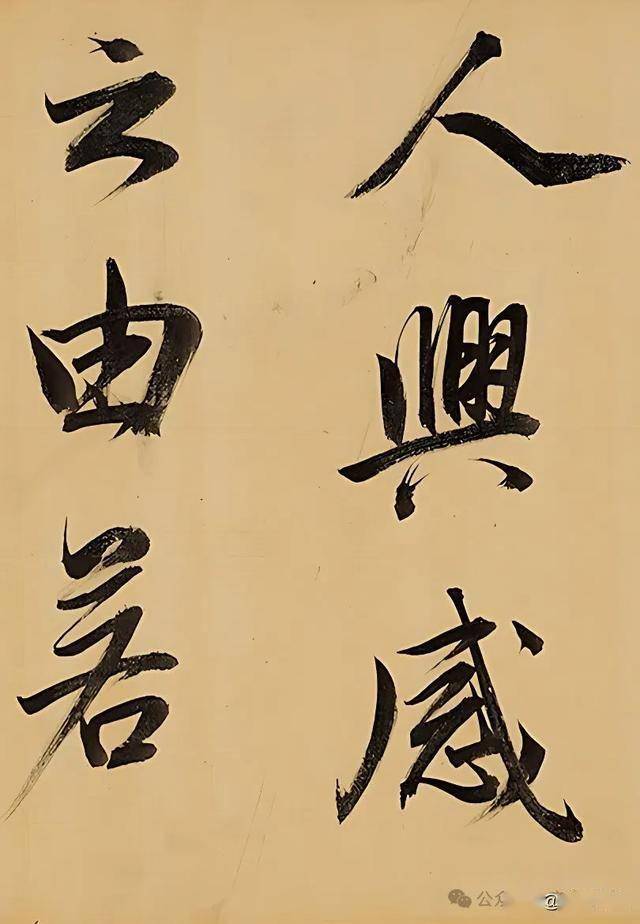 人興感
之由若
公众
@